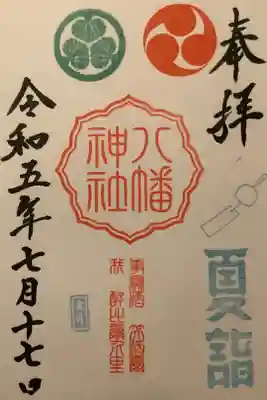 奉拝
八幡
神社
夏詣
令和五年七月十七日